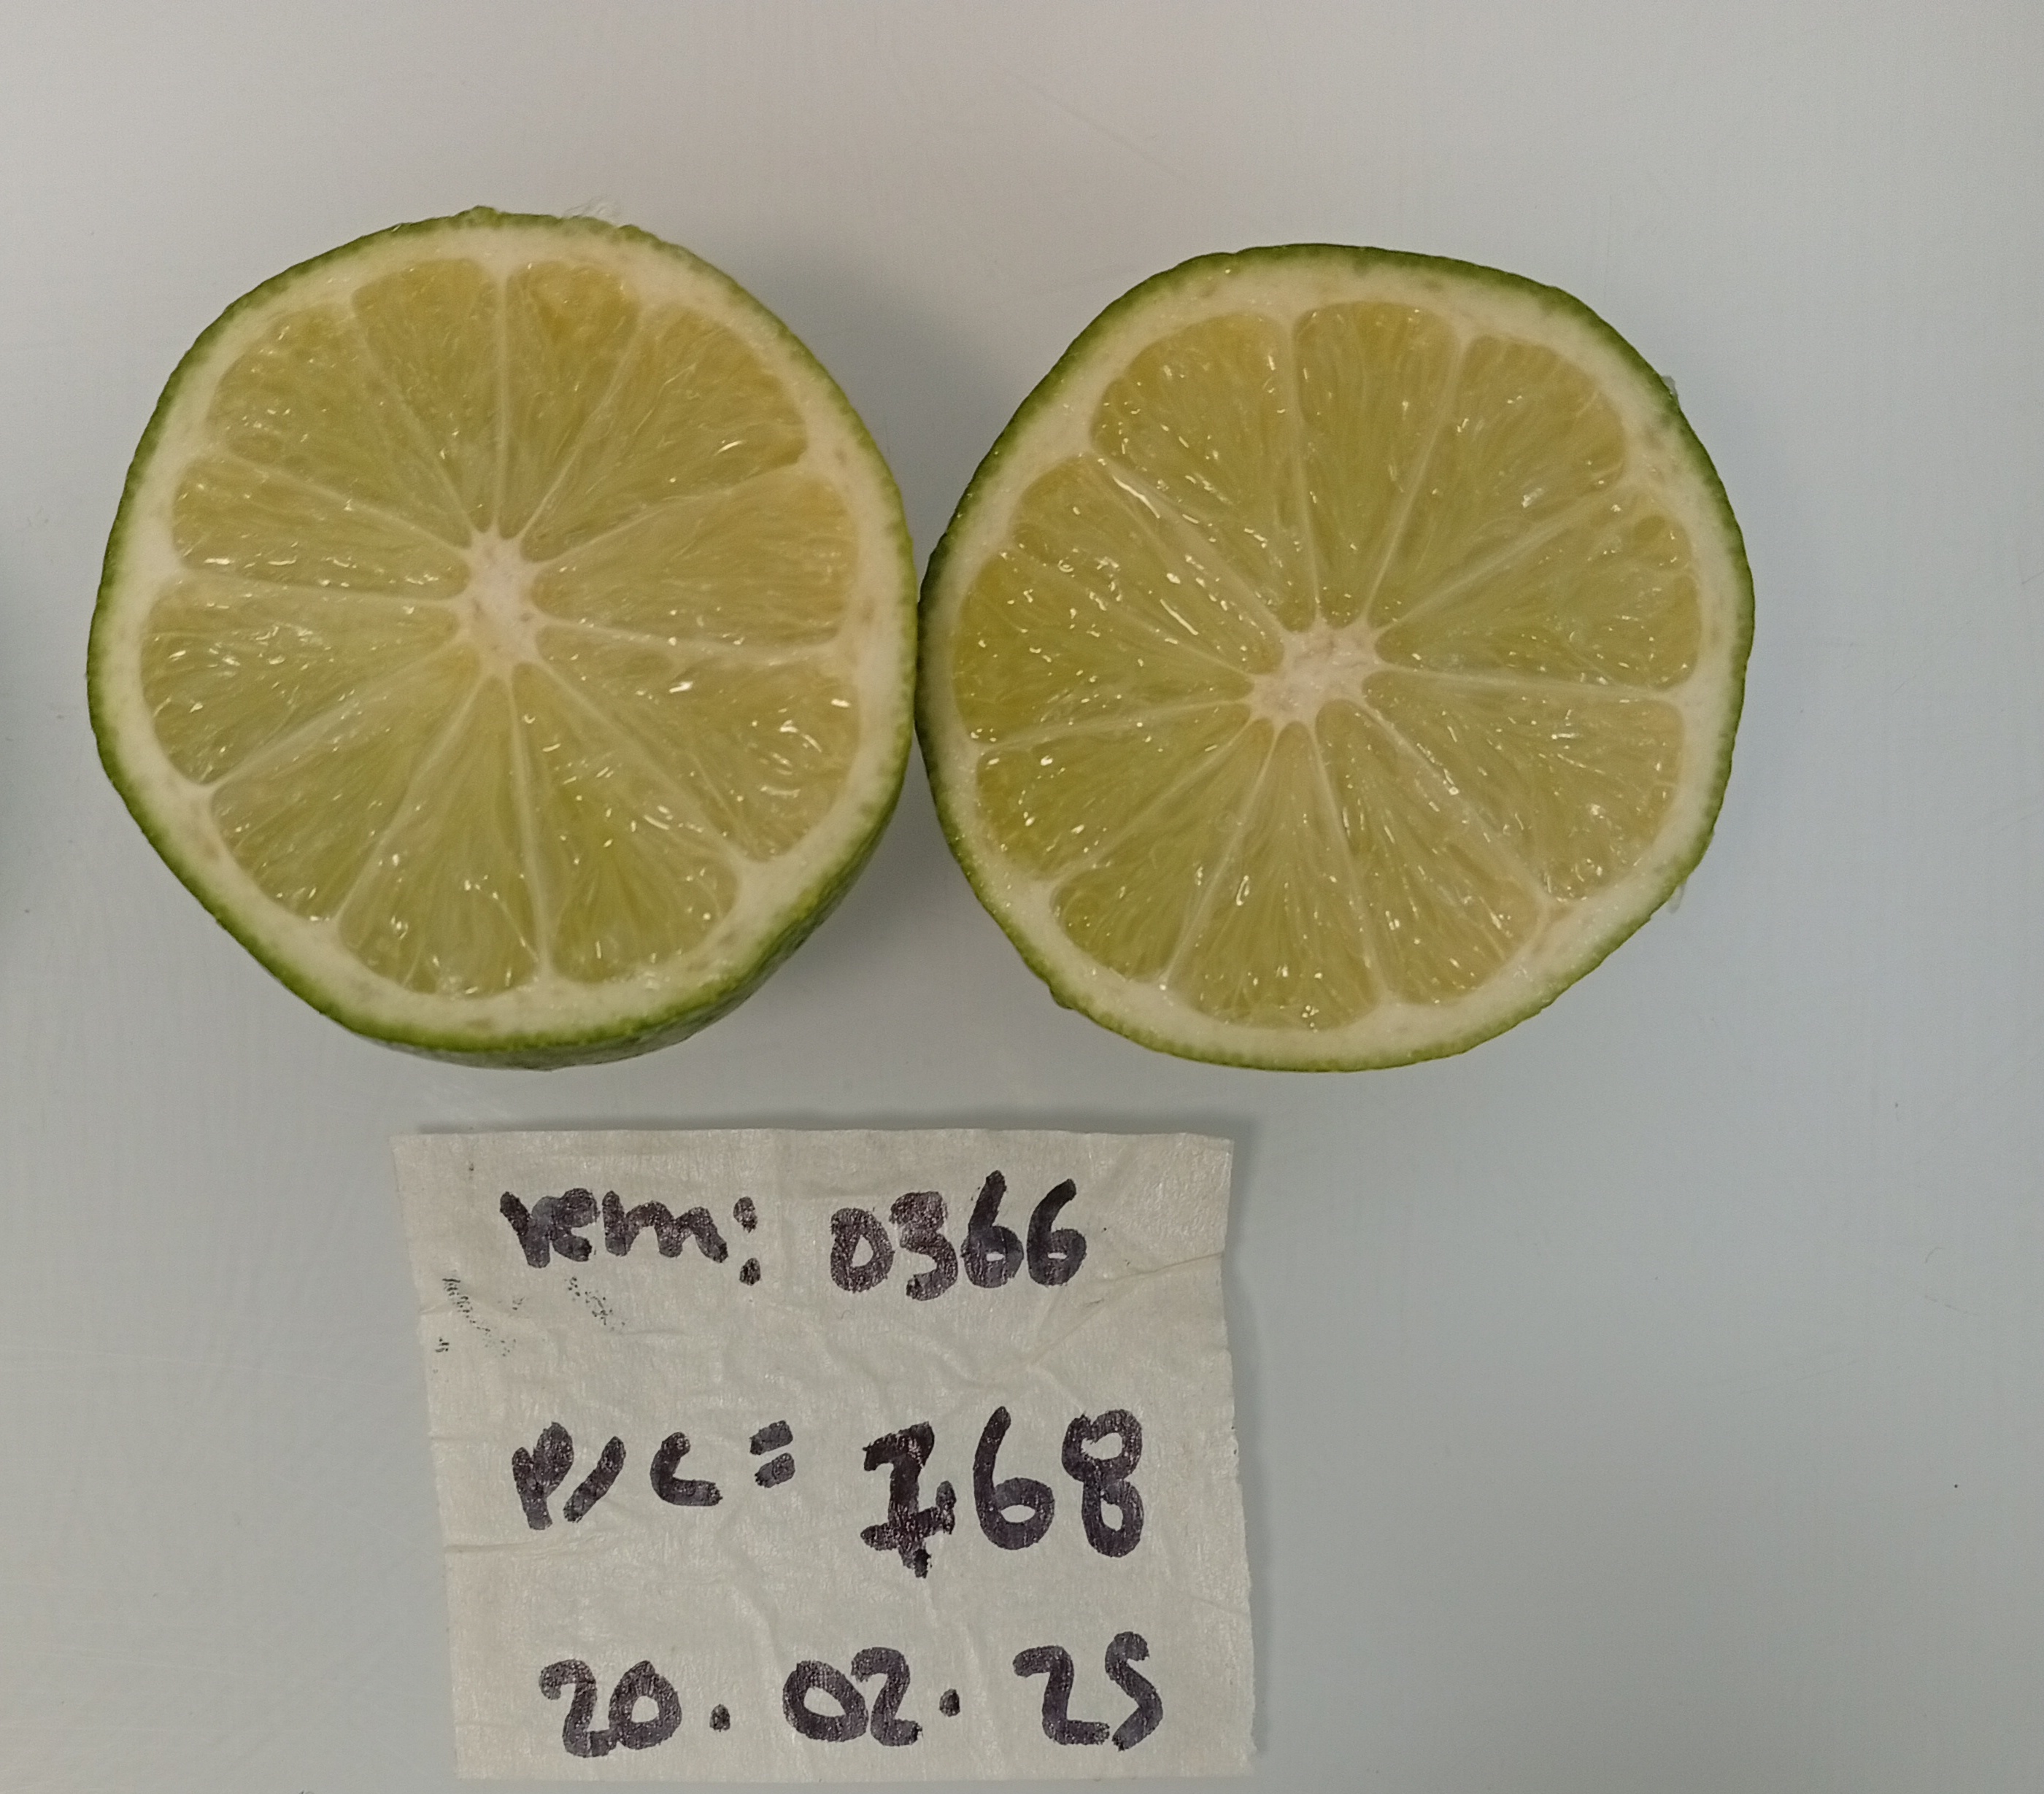 rem: 0366
P/C = 168
20.02.25